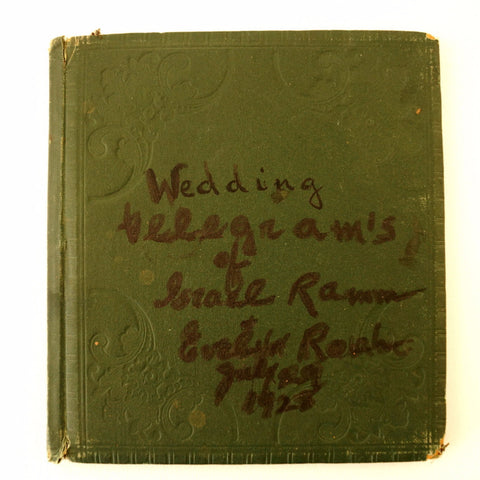 Wedding
telegram's
of
Israel Ramm
+
Evelyn
July 29
1928